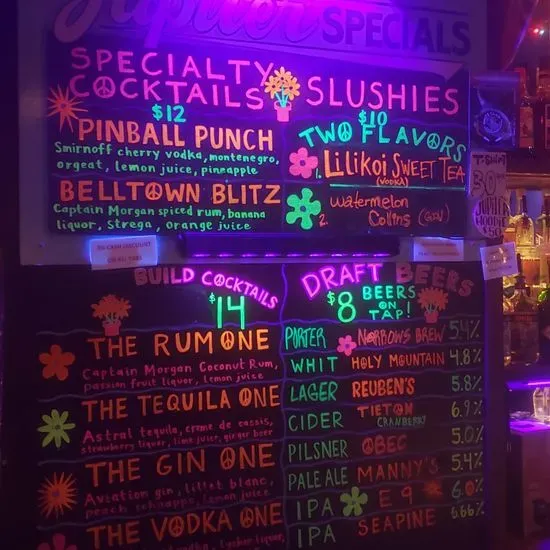 Jupiter SPECIALS
SPECIALTY
COCKTAILS
$12
PINBALL PUNCH
Smirnoff cherry vodka, montenegro,
orgeat, lemon juice, pineapple
BELLTOWN BLITZ
Captain Morgan spiced rum, banana
liquor, Strega, orange juice
SLUSHIES
$10
TWO FLAVORS
1. Lilikoi Sweet Tea
(VODKA)
2. Watermelon
Collins (GIN)
T-SHIRT
30
JUPITER
HOODIE
$50
BUILD COCKTAILS
$14
THE RUM ONE
Captain Morgan Coconut Rum,
passion fruit liquor, lemon juice
THE TEQUILA ONE
Astral tequila, creme de cassis,
strawberry liquor, lime juice, ginger beer
THE GIN ONE
Aviation gin, lillet blanc,
peach schnapps, lemon juice
THE VODKA ONE
DRAFT BEERS
$8 BEERS
ON
TAP!
PORTER NARROWS BREW 5.4%
WHIT HOLY MOUNTAIN 4.8%
LAGER REUBEN'S 5.8%
CIDER TIETON 6.9%
CRANBERRY
PILSNER OBEC 5.0%
PALE ALE MANNY'S 5.4%
IPA E9 6.0%
IPA SEAPINE 6.66%